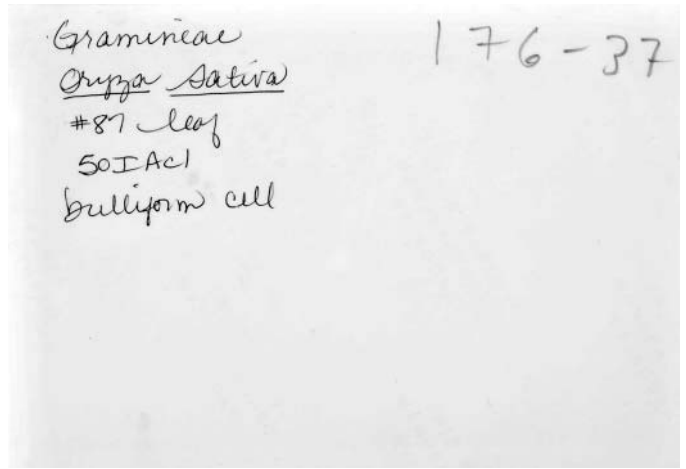 Gramineae
Oryza Sativa
#87 leaf
50IAc1
bulliform cell
176-37